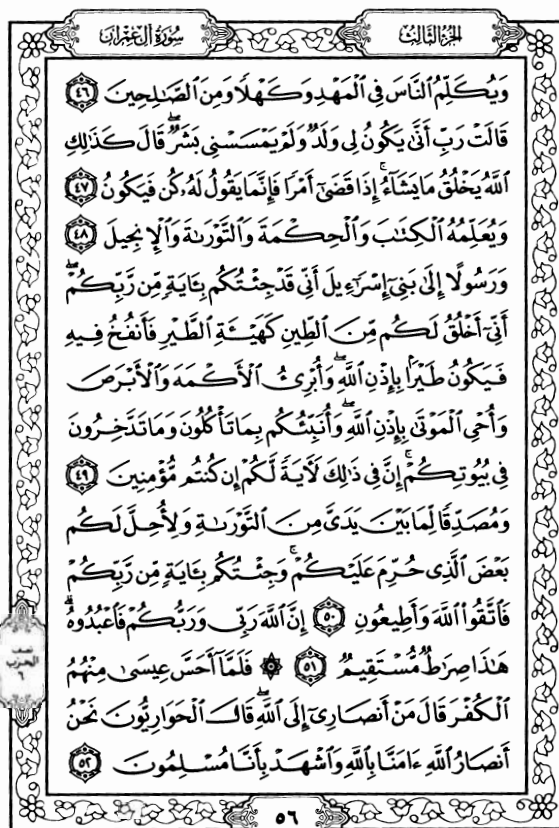 سورة آل عمران
الجزء الثالث
وَيُكَلِّمُ ٱلنَّاسَ فِي ٱلۡمَهۡدِ وَكَهۡلٗا وَمِنَ ٱلصَّٰلِحِينَ ٤٦
قَالَتۡ رَبِّ أَنَّىٰ يَكُونُ لِي وَلَدٞ وَلَمۡ يَمۡسَسۡنِي بَشَرٞۖ قَالَ كَذَٰلِكِ
ٱللَّهُ يَخۡلُقُ مَا يَشَآءُۚ إِذَا قَضَىٰٓ أَمۡرٗا فَإِنَّمَا يَقُولُ لَهُۥ كُن فَيَكُونُ ٤٧
وَيُعَلِّمُهُ ٱلۡكِتَٰبَ وَٱلۡحِكۡمَةَ وَٱلتَّوۡرَىٰةَ وَٱلۡإِنجِيلَ ٤٨
وَرَسُولًا إِلَىٰ بَنِيٓ إِسۡرَٰٓءِيلَ أَنِّي قَدۡ جِئۡتُكُم بِـَٔايَةٖ مِّن رَّبِّكُمۡۖ
أَنِّيٓ أَخۡلُقُ لَكُم مِّنَ ٱلطِّينِ كَهَيۡـَٔةِ ٱلطَّيۡرِ فَأَنفُخُ فِيهِ
فَيَكُونُ طَيۡرَۢا بِإِذۡنِ ٱللَّهِۖ وَأُبۡرِئُ ٱلۡأَكۡمَهَ وَٱلۡأَبۡرَصَ
وَأُحۡيِ ٱلۡمَوۡتَىٰ بِإِذۡنِ ٱللَّهِۖ وَأُنَبِّئُكُم بِمَا تَأۡكُلُونَ وَمَا تَدَّخِرُونَ
فِي بُيُوتِكُمۡۚ إِنَّ فِي ذَٰلِكَ لَأٓيَةٗ لَّكُمۡ إِن كُنتُم مُّؤۡمِنِينَ ٤٩
وَمُصَدِّقٗا لِّمَا بَيۡنَ يَدَيَّ مِنَ ٱلتَّوۡرَىٰةِ وَلِأُحِلَّ لَكُم
بَعۡضَ ٱلَّذِي حُرِّمَ عَلَيۡكُمۡۚ وَجِئۡتُكُم بِـَٔايَةٖ مِّن رَّبِّكُمۡ
فَٱتَّقُواْ ٱللَّهَ وَأَطِيعُونِ ٥٠ إِنَّ ٱللَّهَ رَبِّي وَرَبُّكُمۡ فَٱعۡبُدُوهُۚ
هَٰذَا صِرَٰطٞ مُّسۡتَقِيمٞ ٥١ ۞ فَلَمَّآ أَحَسَّ عِيسَىٰ مِنۡهُمُ
ٱلۡكُفۡرَ قَالَ مَنۡ أَنصَارِيٓ إِلَى ٱللَّهِۖ قَالَ ٱلۡحَوَارِيُّونَ نَحۡنُ
أَنصَارُ ٱللَّهِ ءَامَنَّا بِٱللَّهِ وَٱشۡهَدۡ بِأَنَّا مُسۡلِمُونَ ٥٢
نصف
الحزب
٦
٥٦